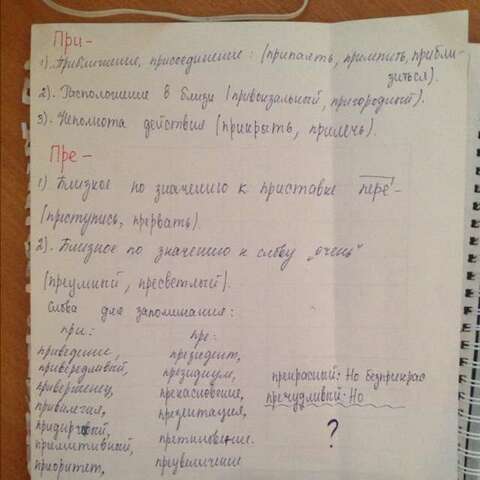 При-
1). Приближение, присоединение: (припаять, прилепить, прибли-
зиться).
2). Расположение в близи (привокзальный, пригородный).
3). Неполнота действия (прикрыть, прилечь).
Пре-
1) Близкое по значению к приставке пере-
(преступись, прервать).
2). Близкое по значению к слову „очень"
(преумный, пресветлый).
Слова для запоминания:
при: пре:
приведение, президент,
привередливый, президиум,
приверженец, прекословение, прекрасный: Но безприкрас
привилегия, презентация, пречудливый: Но
придирчивый, претиновение. ?
примитивный, преувеличение
приоритет,